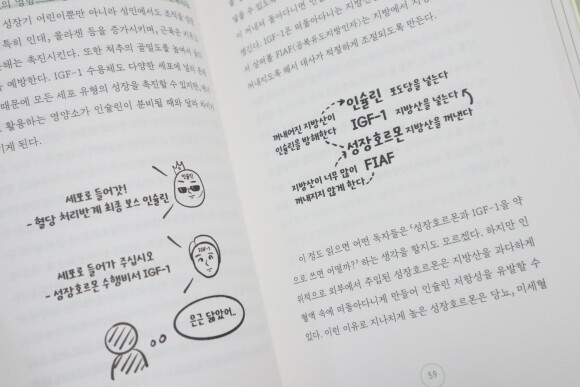 성장기 어린이뿐만 아니라 성인에서도 조직을
특히 인대, 콜라겐 등을 증가시키며, 근육은
촉진시킨다. 또한 척추의 골밀도를 높여서
예방한다. IGF-1 수용체도 다양한 세포에
때문에 모든 세포 유형의 성장을 촉진할 수 있지만,
활용하는 영양소가 인슐린이 분비될 때와 달라
게 된다.
인슐린
세포로 들어갓!
- 혈당 처리반계 최종 보스 인슐린
IGF-1
세포로 들어가 주십시오
- 성장호르몬 수행비서 IGF-1
은근 닮았어..
꺼내서 돌아다니면
생긴다. IGF-1은 떠돌아다니는 지방산
서 살펴볼 FIAF(공복유도지방인자)는 지방에서 지방
꺼내지도록 해서 대사가 적절하게 조정되도록 만든다.
인슐린 포도당을 넣는다
꺼내어진 지방산이
인슐린을 방해한다
IGF-1 지방산을 넣는다
성장호르몬 지방산을 꺼낸다
지방산이 너무 많이
꺼내지지 않게 한다
FIAF
이 정도 읽으면 어떤 독자들은 '성장호르몬과 IGF-1을 약
으로 쓰면 어떨까?' 하는 생각을 할지도 모르겠다. 하지만 인
위적으로 외부에서 주입된 성장호르몬은 지방산을 과다하게
혈액 속에 떠돌아다니게 만들어 인슐린 저항성을 유발할 수
있다. 이런 이유로 지나치게 높은 성장호르몬은 당뇨, 미세혈
59